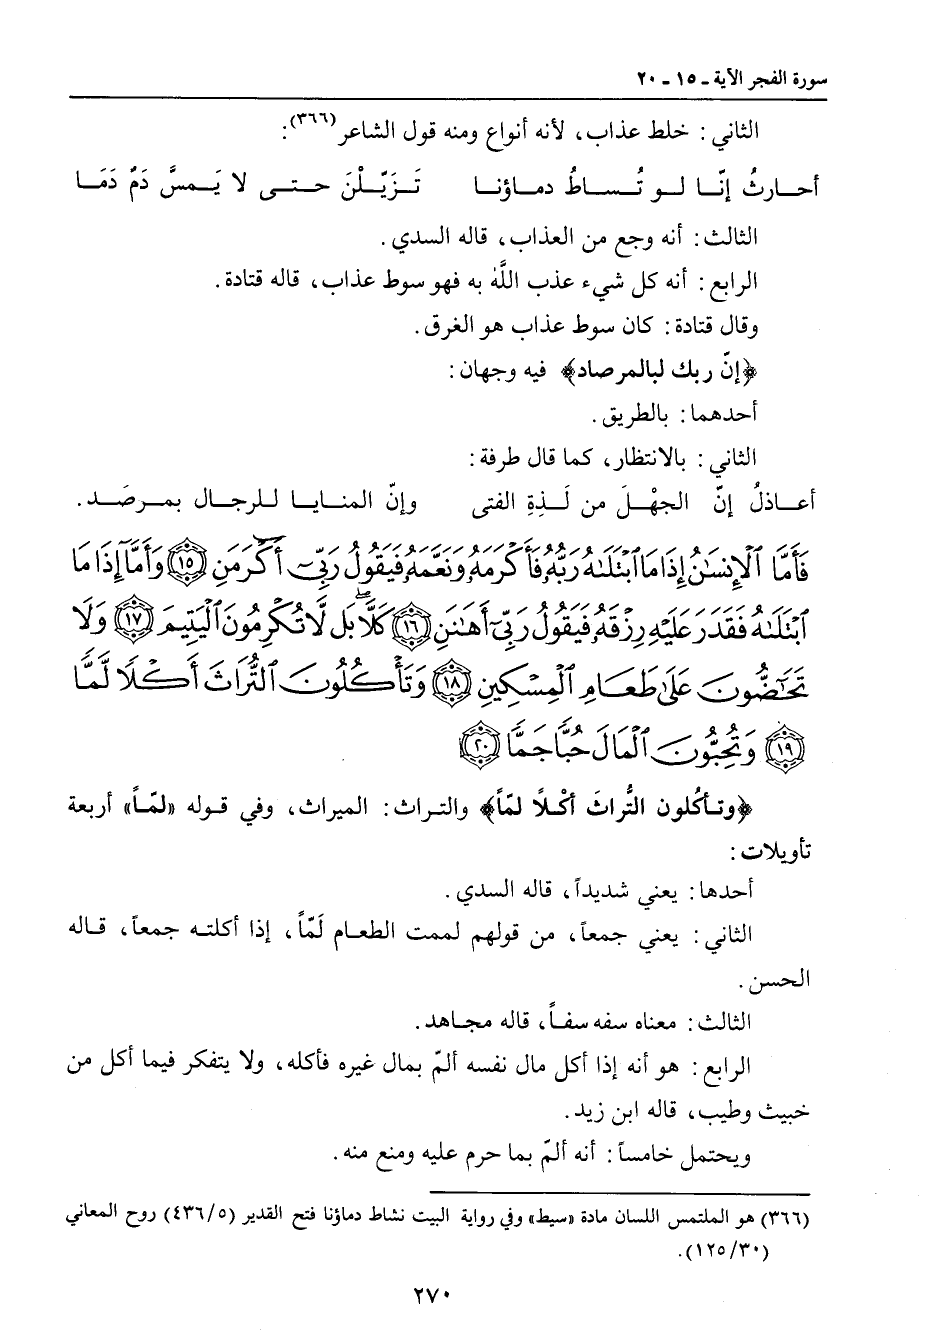 سورة الفجر الآية ـ ١٥ ـ ٢٠
الثاني : خلط عذاب، لأنه أنواع ومنه قول الشاعر(٣٦٦):
أحارثُ إنّا لو تُساطُ دماؤنا تَزَيّلْنَ حتى لا يَمسَّ دَمٌ دَمَا
الثالث : أنه وجع من العذاب، قاله السدي .
الرابع : أنه كل شيء عذب اللَّهُ به فهو سوط عذاب، قاله قتادة .
وقال قتادة : كان سوط عذاب هو الغرق .
﴿إنّ ربك لبالمرصاد﴾ فيه وجهان :
أحدهما : بالطريق .
الثاني : بالانتظار، كما قال طرفة :
أعاذلُ إنّ الجهْلَ من لَذةِ الفتى وإنّ المنايا للرجال بمرصَد .
فَأَمَّا ٱلْإِنسَٰنُ إِذَا مَا ٱبْتَلَىٰهُ رَبُّهُۥ فَأَكْرَمَهُۥ وَنَعَّمَهُۥ فَيَقُولُ رَبِّىٓ أَكْرَمَنِ ﴿١٥﴾ وَأَمَّآ إِذَا مَا
ٱبْتَلَىٰهُ فَقَدَرَ عَلَيْهِ رِزْقَهُۥ فَيَقُولُ رَبِّىٓ أَهَٰنَنِ ﴿١٦﴾ كَلَّا ۖ بَل لَّا تُكْرِمُونَ ٱلْيَتِيمَ ﴿١٧﴾ وَلَا
تَحَٰٓضُّونَ عَلَىٰ طَعَامِ ٱلْمِسْكِينِ ﴿١٨﴾ وَتَأْكُلُونَ ٱلتُّرَاثَ أَكْلًا لَّمًّا
﴿١٩﴾ وَتُحِبُّونَ ٱلْمَالَ حُبًّا جَمًّا ﴿٢٠﴾
﴿وتأكلون التُّراثَ أكْلاً لمّاً﴾ والتراث : الميراث، وفي قوله «لمّاً» أربعة
تأويلات :
أحدها : يعني شديداً، قاله السدي .
الثاني : يعني جمعاً، من قولهم لممت الطعام لَمّاً، إذا أكلته جمعاً، قاله
الحسن .
الثالث : معناه سفه سفاً، قاله مجاهد .
الرابع : هو أنه إذا أكل مال نفسه ألمّ بمال غيره فأكله، ولا يتفكر فيما أكل من
خبيث وطيب، قاله ابن زيد .
ويحتمل خامساً : أنه ألمّ بما حرم عليه ومنع منه .
(٣٦٦) هو الملتمس اللسان مادة «سيط» وفي رواية البيت نشاط دماؤنا فتح القدير (٤٣٦/٥) روح المعاني
(١٢٥/٣٠).
٢٧٠